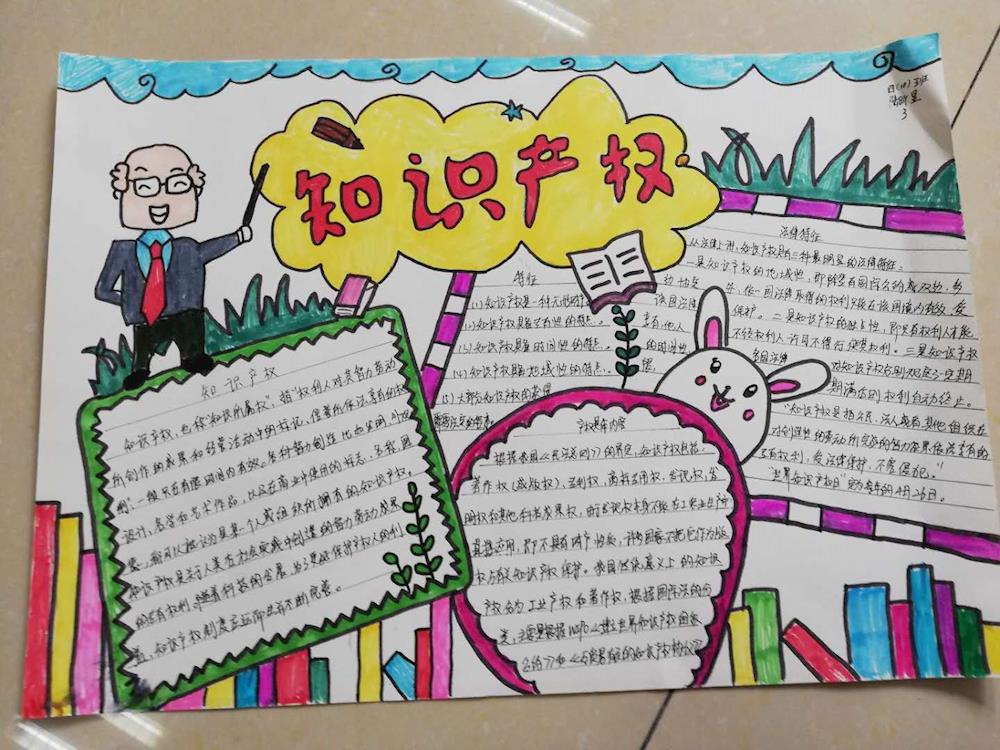 知识产权
四(10)班
3
知识产权
知识产权,也称"知识所属权",指"权利人对其智力劳动
所创作的成果和经营活动中的标记、信誉所依法享有的权
利",一般只在有限时间内有效。各种智力创造比如发明、外观
设计、文学和艺术作品,以及在商业中使用的标志、名称、图
像,都可以被认为是某一个人或组织所拥有的知识产权。
知识产权是关于人类在社会实践中创造的智力劳动成果
的专有权利。随着科技的发展,为了更好保护产权人的利
益,知识产权制度应运而生并不断完善。
特征
(1)知识产权是一种无形财产
(2)知识产权具备专有性的特点。
(3)知识产权具备时间性的特点。
(4)知识产权具备地域性的特点。
(5)大部分知识产权的获得
需要法定的程序。
产权具体内容
根据我国《民法通则》的规定,知识产权包括
著作权(或版权)、专利权、商标专用权、发现权、发
明权和其他科技成果权,
直接应用,即不具有财产性质,许多国家不把它作为版
权
产权分为工业产权和著作权,根据国际法的分
类,主要是根据WIPO《建立世界知识产权组织
公约》和《与贸易有关的知识产权协议》
法律特征
从法律上讲,知识产权具有三种最明显的法律特征。
一是知识产权的地域性,即除签有国际公约或双边、多
边协定外,依一国法律取得的权利只能在该国境内有效,受
该国法律保护。二是知识产权的独占性,即只有权利人才能
享有,他人不经权利人许可不得行使其权利。三是知识产权
的时间性,各国法律对知识产权分别规定了一定期
限,期满后则权利自动终止。
"知识产权是指公民、法人或者其他组织在
对创造性的劳动所完成的智力成果依法享有的
专有权利,受法律保护,不容侵犯。"
"世界知识产权日"定为每年的4月26日。